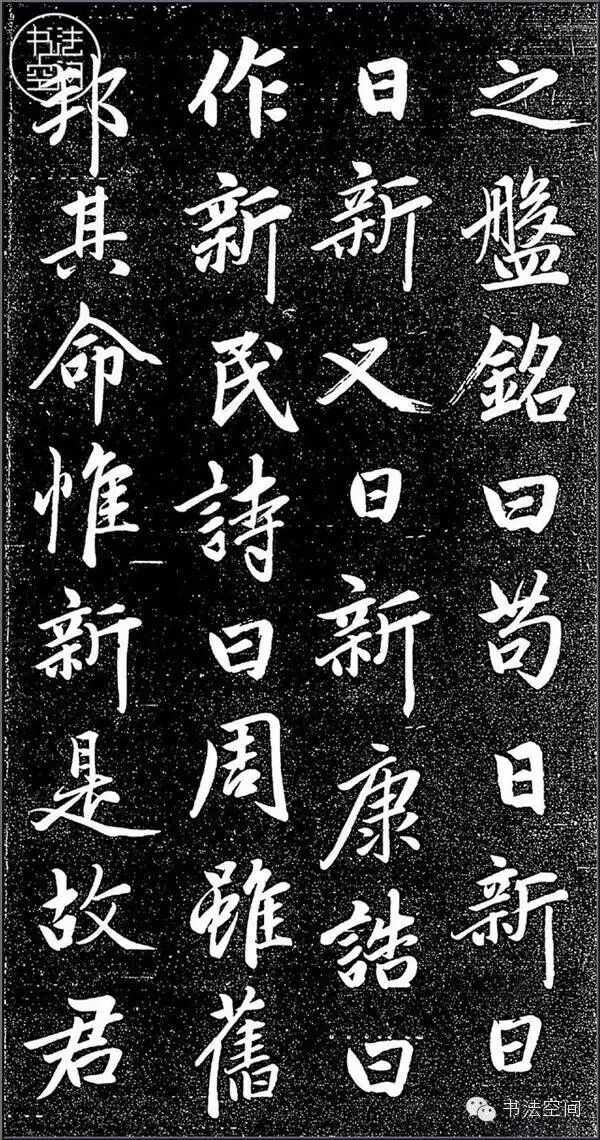 之盤銘曰苟日新日
日新又日新康誥曰
作新民詩曰周雖舊
邦其命惟新是故君
书法空间
书法空间